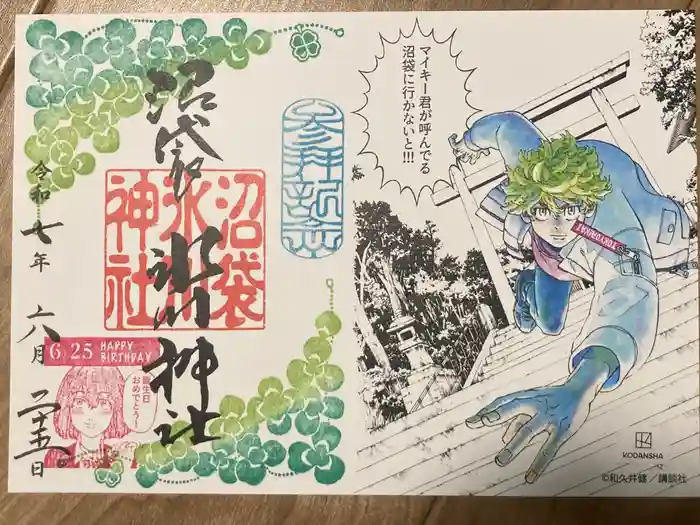 沼袋
氷川神社
沼袋
氷川
神社
令和七年
六月
二十五日
6 25 HAPPY
BIRTHDAY
誕生日
おめでとう
マイキー君が呼んでる
沼袋に行かないと!!!
KODANSHA
©和久井健/講談社